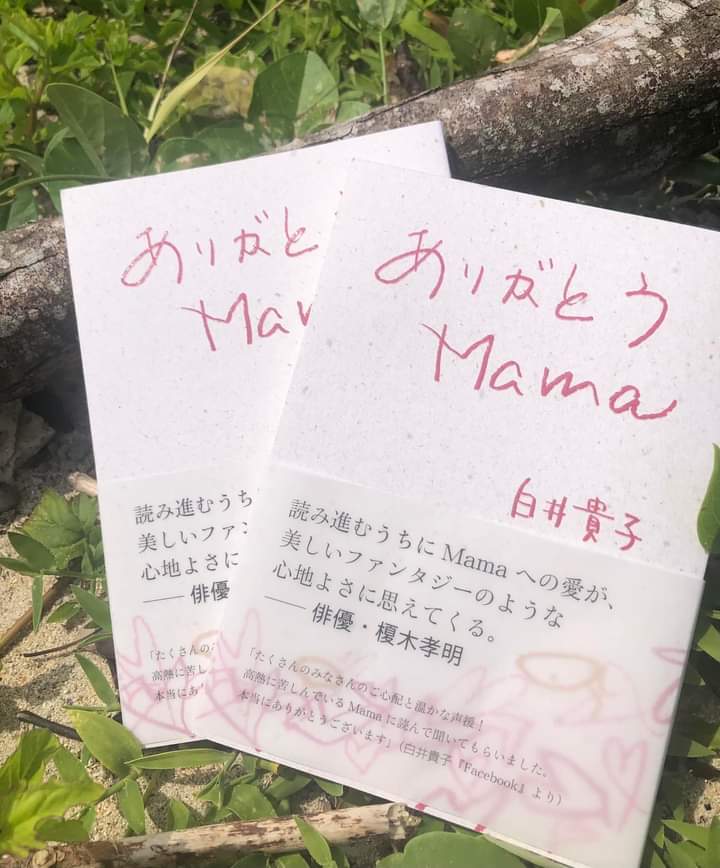 ありがと
Mam
ありがとう
Mama
白井貴子
読み進むうち
美しいファン
心地よさに
── 俳優
「たくさんの
高熱に苦し
本当にあ
読み進むうちに Mama への愛が、
美しいファンタジーのような
心地よさに思えてくる。
── 俳優・榎木孝明
「たくさんのみなさんのご心配と温かな声援！
高熱に苦しんでいる Mama に読んで聞いてもらいました。
本当にありがとうございます」（白井貴子『Facebook』より）